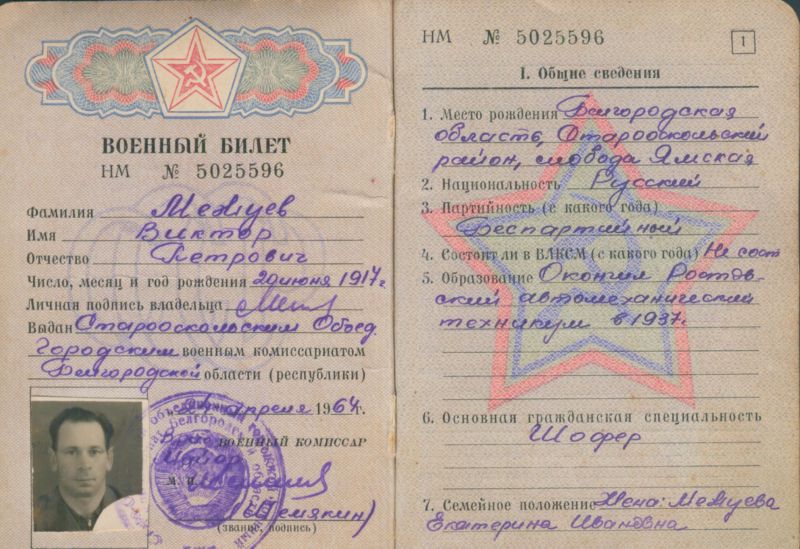 ВОЕННЫЙ БИЛЕТ
НМ № 5025596
Фамилия Межуев
Имя Виктор
Отчество Петрович
Число, месяц и год рождения 20 июня 1917 г
Личная подпись владельца
Выдан Старооскольским Объед.
городским военным комиссариатом
Белгородской области (республики)
апреля 1964 г.
ВОЕННЫЙ КОМИССАР
Майор
М. П.
(Шемякин)
(звание, подпись)
НМ № 5025596
1
I. Общие сведения
1. Место рождения Белгородская
область, Старооскольский
район, слобода Ямская
2. Национальность Русский
3. Партийность (с какого года)
Беспартийный
4. Состоит ли в ВЛКСМ (с какого года) Не сост
5. Образование Окончил Ростов-
ский автомеханический
техникум в 1937г.
6. Основная гражданская специальность
Шофер
7. Семейное положение Жена: Межуева
Екатерина Ивановна